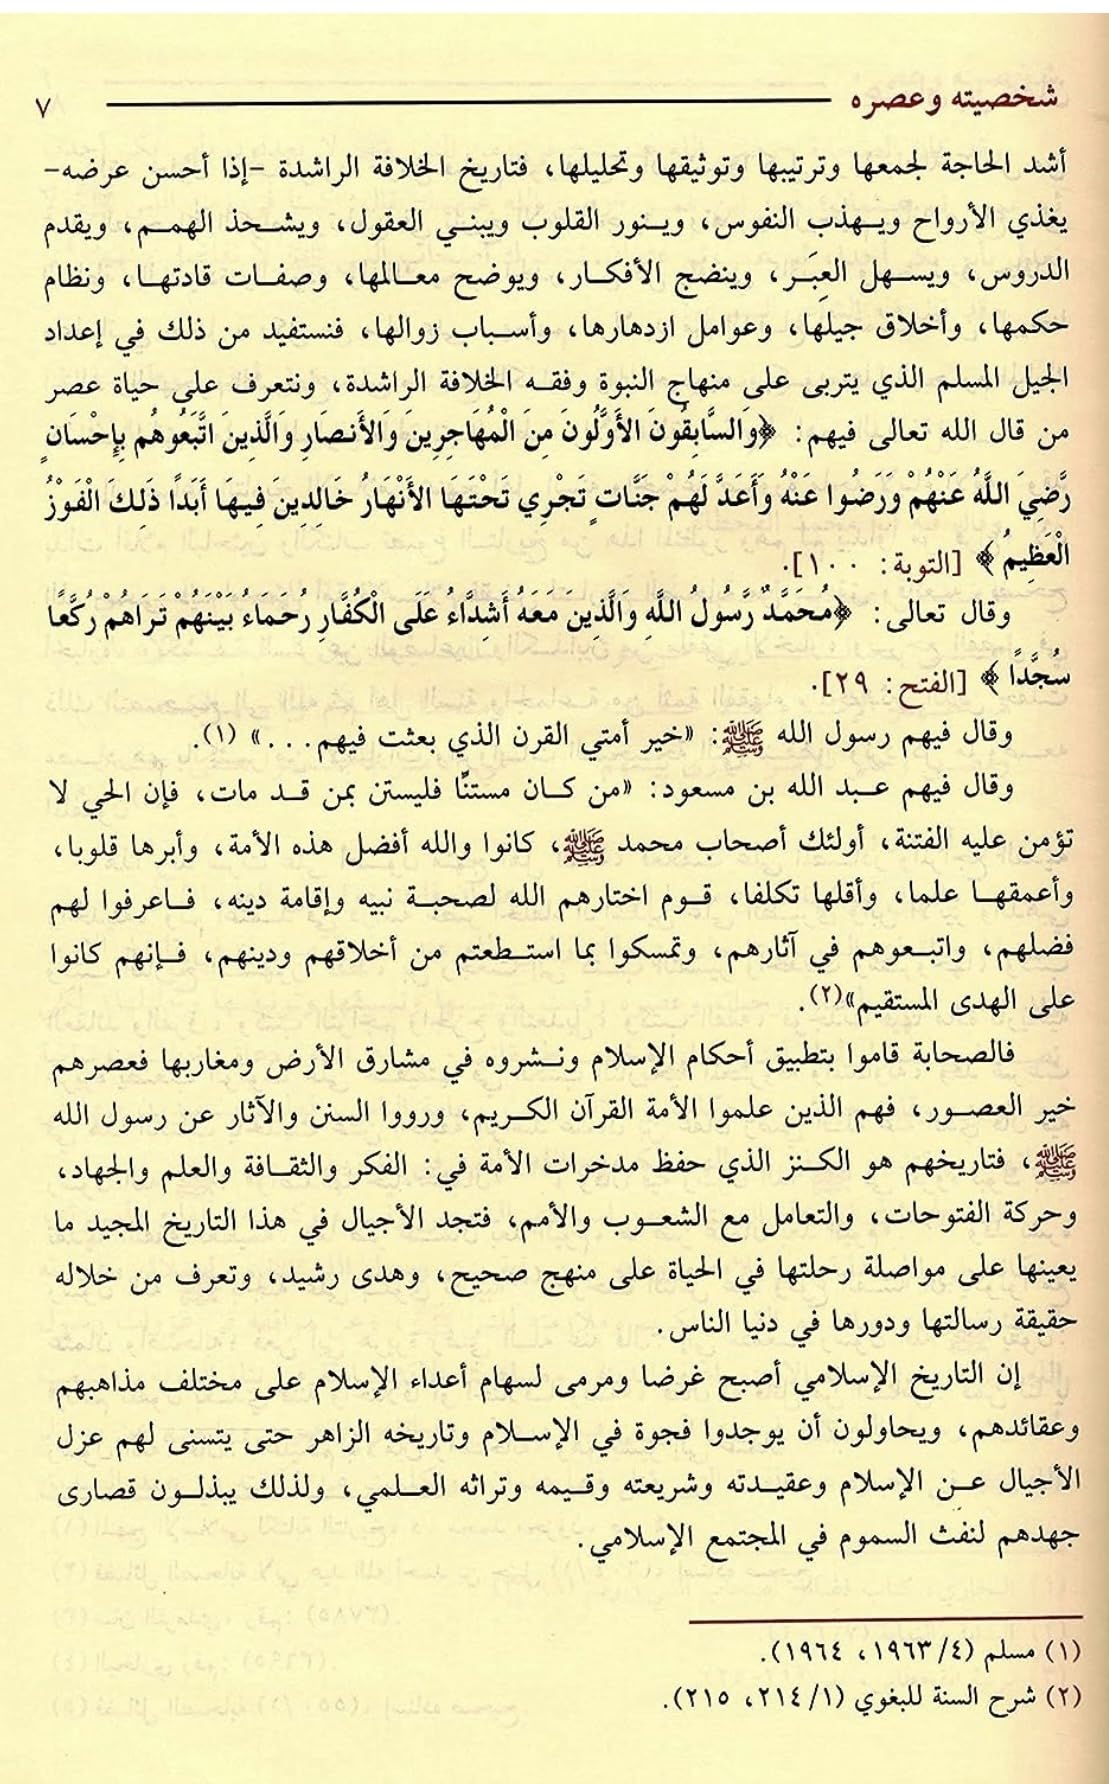 شخصيته وعصره ٧
أشد الحاجة لجمعها وترتيبها وتوثيقها وتحليلها، فتاريخ الخلافة الراشدة -إذا أحسن عرضه-
يغذي الأرواح ويهذب النفوس، وينور القلوب ويبني العقول، ويشحذ الهمم، ويقدم
الدروس، ويسهل العِبَر، وينضج الأفكار، ويوضح معالمها، وصفات قادتها، ونظام
حكمها، وأخلاق جيلها، وعوامل ازدهارها، وأسباب زوالها، فنستفيد من ذلك في إعداد
الجيل المسلم الذي يتربى على منهاج النبوة وفقه الخلافة الراشدة، ونتعرف على حياة عصر
من قال الله تعالى فيهم: ﴿وَالسَّابِقُونَ الأَوَّلُونَ مِنَ الْمُهَاجِرِينَ وَالأَنصَارِ وَالَّذِينَ اتَّبَعُوهُم بِإِحْسَانٍ
رَّضِيَ اللَّهُ عَنْهُمْ وَرَضُوا عَنْهُ وَأَعَدَّ لَهُمْ جَنَّاتٍ تَجْرِي تَحْتَهَا الأَنْهَارُ خَالِدِينَ فِيهَا أَبَدًا ذَلِكَ الْفَوْزُ
الْعَظِيمُ﴾ [التوبة: ١٠٠].
وقال تعالى: ﴿مُحَمَّدٌ رَّسُولُ اللَّهِ وَالَّذِينَ مَعَهُ أَشِدَّاءُ عَلَى الْكُفَّارِ رُحَمَاءُ بَيْنَهُمْ تَرَاهُمْ رُكَّعًا
سُجَّدًا﴾ [الفتح: ٢٩].
وقال فيهم رسول الله ﷺ: «خير أمتي القرن الذي بعثت فيهم...» (١).
وقال فيهم عبد الله بن مسعود: «من كان مستنًّا فليستن بمن قد مات، فإن الحي لا
تؤمن عليه الفتنة، أولئك أصحاب محمد ﷺ، كانوا والله أفضل هذه الأمة، وأبرها قلوبا،
وأعمقها علما، وأقلها تكلفا، قوم اختارهم الله لصحبة نبيه وإقامة دينه، فاعرفوا لهم
فضلهم، واتبعوهم في آثارهم، وتمسكوا بما استطعتم من أخلاقهم ودينهم، فإنهم كانوا
على الهدى المستقيم»(٢).
فالصحابة قاموا بتطبيق أحكام الإسلام ونشروه في مشارق الأرض ومغاربها فعصرهم
خير العصور، فهم الذين علموا الأمة القرآن الكريم، ورووا السنن والآثار عن رسول الله
ﷺ، فتاريخهم هو الكنز الذي حفظ مدخرات الأمة في: الفكر والثقافة والعلم والجهاد،
وحركة الفتوحات، والتعامل مع الشعوب والأمم، فتجد الأجيال في هذا التاريخ المجيد ما
يعينها على مواصلة رحلتها في الحياة على منهج صحيح، وهدى رشيد، وتعرف من خلاله
حقيقة رسالتها ودورها في دنيا الناس.
إن التاريخ الإسلامي أصبح غرضا ومرمى لسهام أعداء الإسلام على مختلف مذاهبهم
وعقائدهم، ويحاولون أن يوجدوا فجوة في الإسلام وتاريخه الزاهر حتى يتسنى لهم عزل
الأجيال عن الإسلام وعقيدته وشريعته وقيمه وتراثه العلمي، ولذلك يبذلون قصارى
جهدهم لنفث السموم في المجتمع الإسلامي.
(١) مسلم (٤/ ١٩٦٣، ١٩٦٤).
(٢) شرح السنة للبغوي (١/ ٢١٤، ٢١٥).